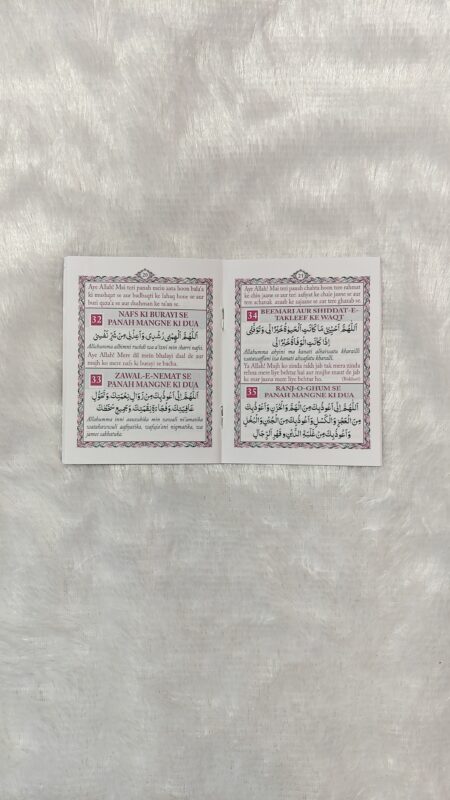 20
Aye Allah! Mai teri panah mein aata hoon bala'a
ki mushqat se aur badbaqti ke lahaq hone se aur
buri qaza'a se aur dushman ke ta'an se.
32
NAFS KI BURAYI SE
PANAH MANGNE KI DUA
اَللّٰهُمَّ اَلْهِمْنِىْ رُشْدِىْ وَاَعِذْنِىْ مِنْ شَرِّ نَفْسِىْ
Allahumma alhimni rushdi wa a'izni min sharri nafsi.
Aye Allah! Mere dil mein bhalayi daal de aur
mujh ko mere nafs ki burayi se bacha.
33
ZAWAL-E-NEMAT SE
PANAH MANGNE KI DUA
اَللّٰهُمَّ اِنِّىْ اَعُوْذُبِكَ مِنْ زَوَالِ نِعْمَتِكَ وَتَحَوُّلِ
عَافِيَتِكَ وَفُجَاءَةِ نِقْمَتِكَ وَجَمِيْعِ سَخَطِكَ
Allahumma inni auzubika min zawali ni'amatika
watahawwuli aafiyatika, wafuja'ani niqmatika, wa
jameei sakhatika.
21
Aye Allah! Mai teri panah chahta hoon teri rahmat
ke chin jaane se aur teri aafiyat ke chale jaane se aur
tere achanak azaab ke aajaane se aur tere ghazab se.
34
BEEMARI AUR SHIDDAT-E-
TAKLEEF KE WAQT
اَللّٰهُمَّ اَحْيِنِىْ مَا كَانَتِ الْحَيٰوةُ خَيْرًا لِّىْ وَتَوَفَّنِىْ
اِذَا كَانَتِ الْوَفَاةُ خَيْرًا لِّىْ
Allahumma ahyini ma kanati alhaiyatu khairalli
watawaffani iza kanati alwafatu khairalli.
Ya Allah! Mujh ko zinda rakh jab tak mera zinda
rehna mere liye behtar hai aur mujhe maut de jab
ke mar jaana mere liye behtar ho. (Bukhari)
35
RANJ-O-GHUM SE
PANAH MANGNE KI DUA
اَللّٰهُمَّ اِنِّىْ اَعُوْذُبِكَ مِنَ الْهَمِّ وَالْحُزْنِ وَاَعُوْذُبِكَ
مِنَ الْعَجْزِ وَالْكَسَلِ وَاَعُوْذُبِكَ مِنَ الْجُبْنِ وَالْبُخْلِ
وَاَعُوْذُبِكَ مِنْ غَلَبَةِ الدَّيْنِ وَقَهْرِ الرِّجَالِ